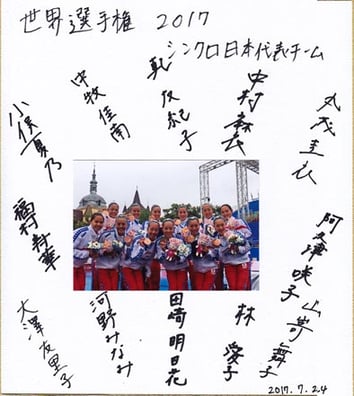 世界選手権 2017
シンクロ日本代表チーム
丸茂圭衣
中村麻衣
乾友紀子
中牧佳南
小俣夏乃
阿久津咲子
山嵜舞子
林愛子
田崎明日花
河野みなみ
福村寿華
大澤友里子
2017.7.24